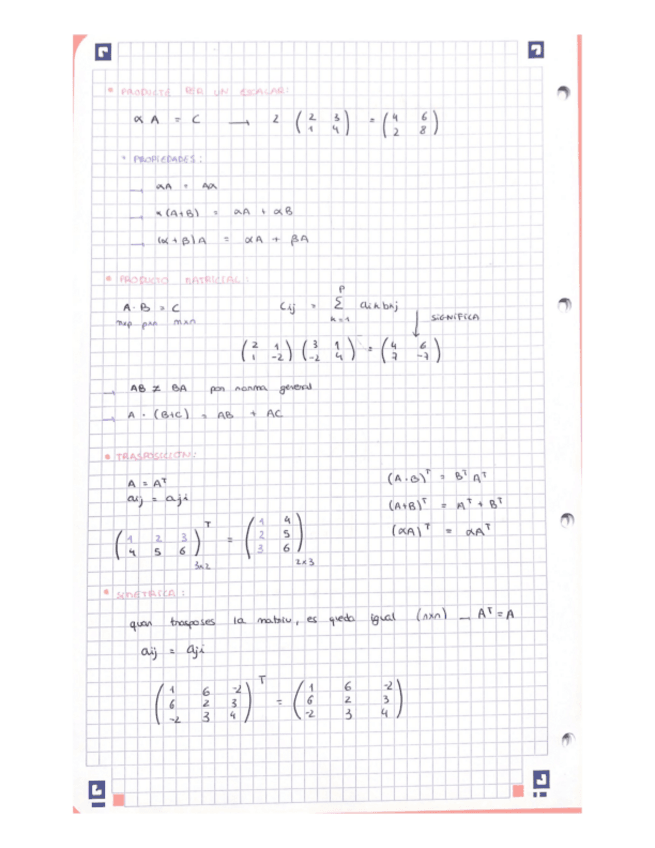 * PRODUCTE PER UN ESCALAR:
α A = C → 2 ( 2 3 ; 1 4 ) = ( 4 6 ; 2 8 )
* PROPIEDADES:
→ αA = Aα
→ α(A+B) = αA + αB
→ (α+β)A = αA + βA
* PRODUCTO MATRICIAL:
A · B = C
mxp pxn mxn
Cij = Σ aik bkj
P
k=1
SIGNIFICA
( 2 1 ; 1 -2 ) ( 3 1 ; -2 4 ) = ( 4 6 ; 7 -7 )
→ AB ≠ BA por norma general
→ A · (B+C) = AB + AC
* TRASPOSICIÓN:
A = Aᵀ
aij = aji
(A·B)ᵀ = Bᵀ Aᵀ
(A+B)ᵀ = Aᵀ + Bᵀ
(αA)ᵀ = αAᵀ
( 1 2 3 ; 4 5 6 )ᵀ = ( 1 4 ; 2 5 ; 3 6 )
3x2 2x3
* SIMETRICA:
quan trasposes la matriu, es queda igual (nxn) — Aᵀ = A
aij = aji
( 1 6 -2 ; 6 2 3 ; -2 3 4 )ᵀ = ( 1 6 -2 ; 6 2 3 ; -2 3 4 )